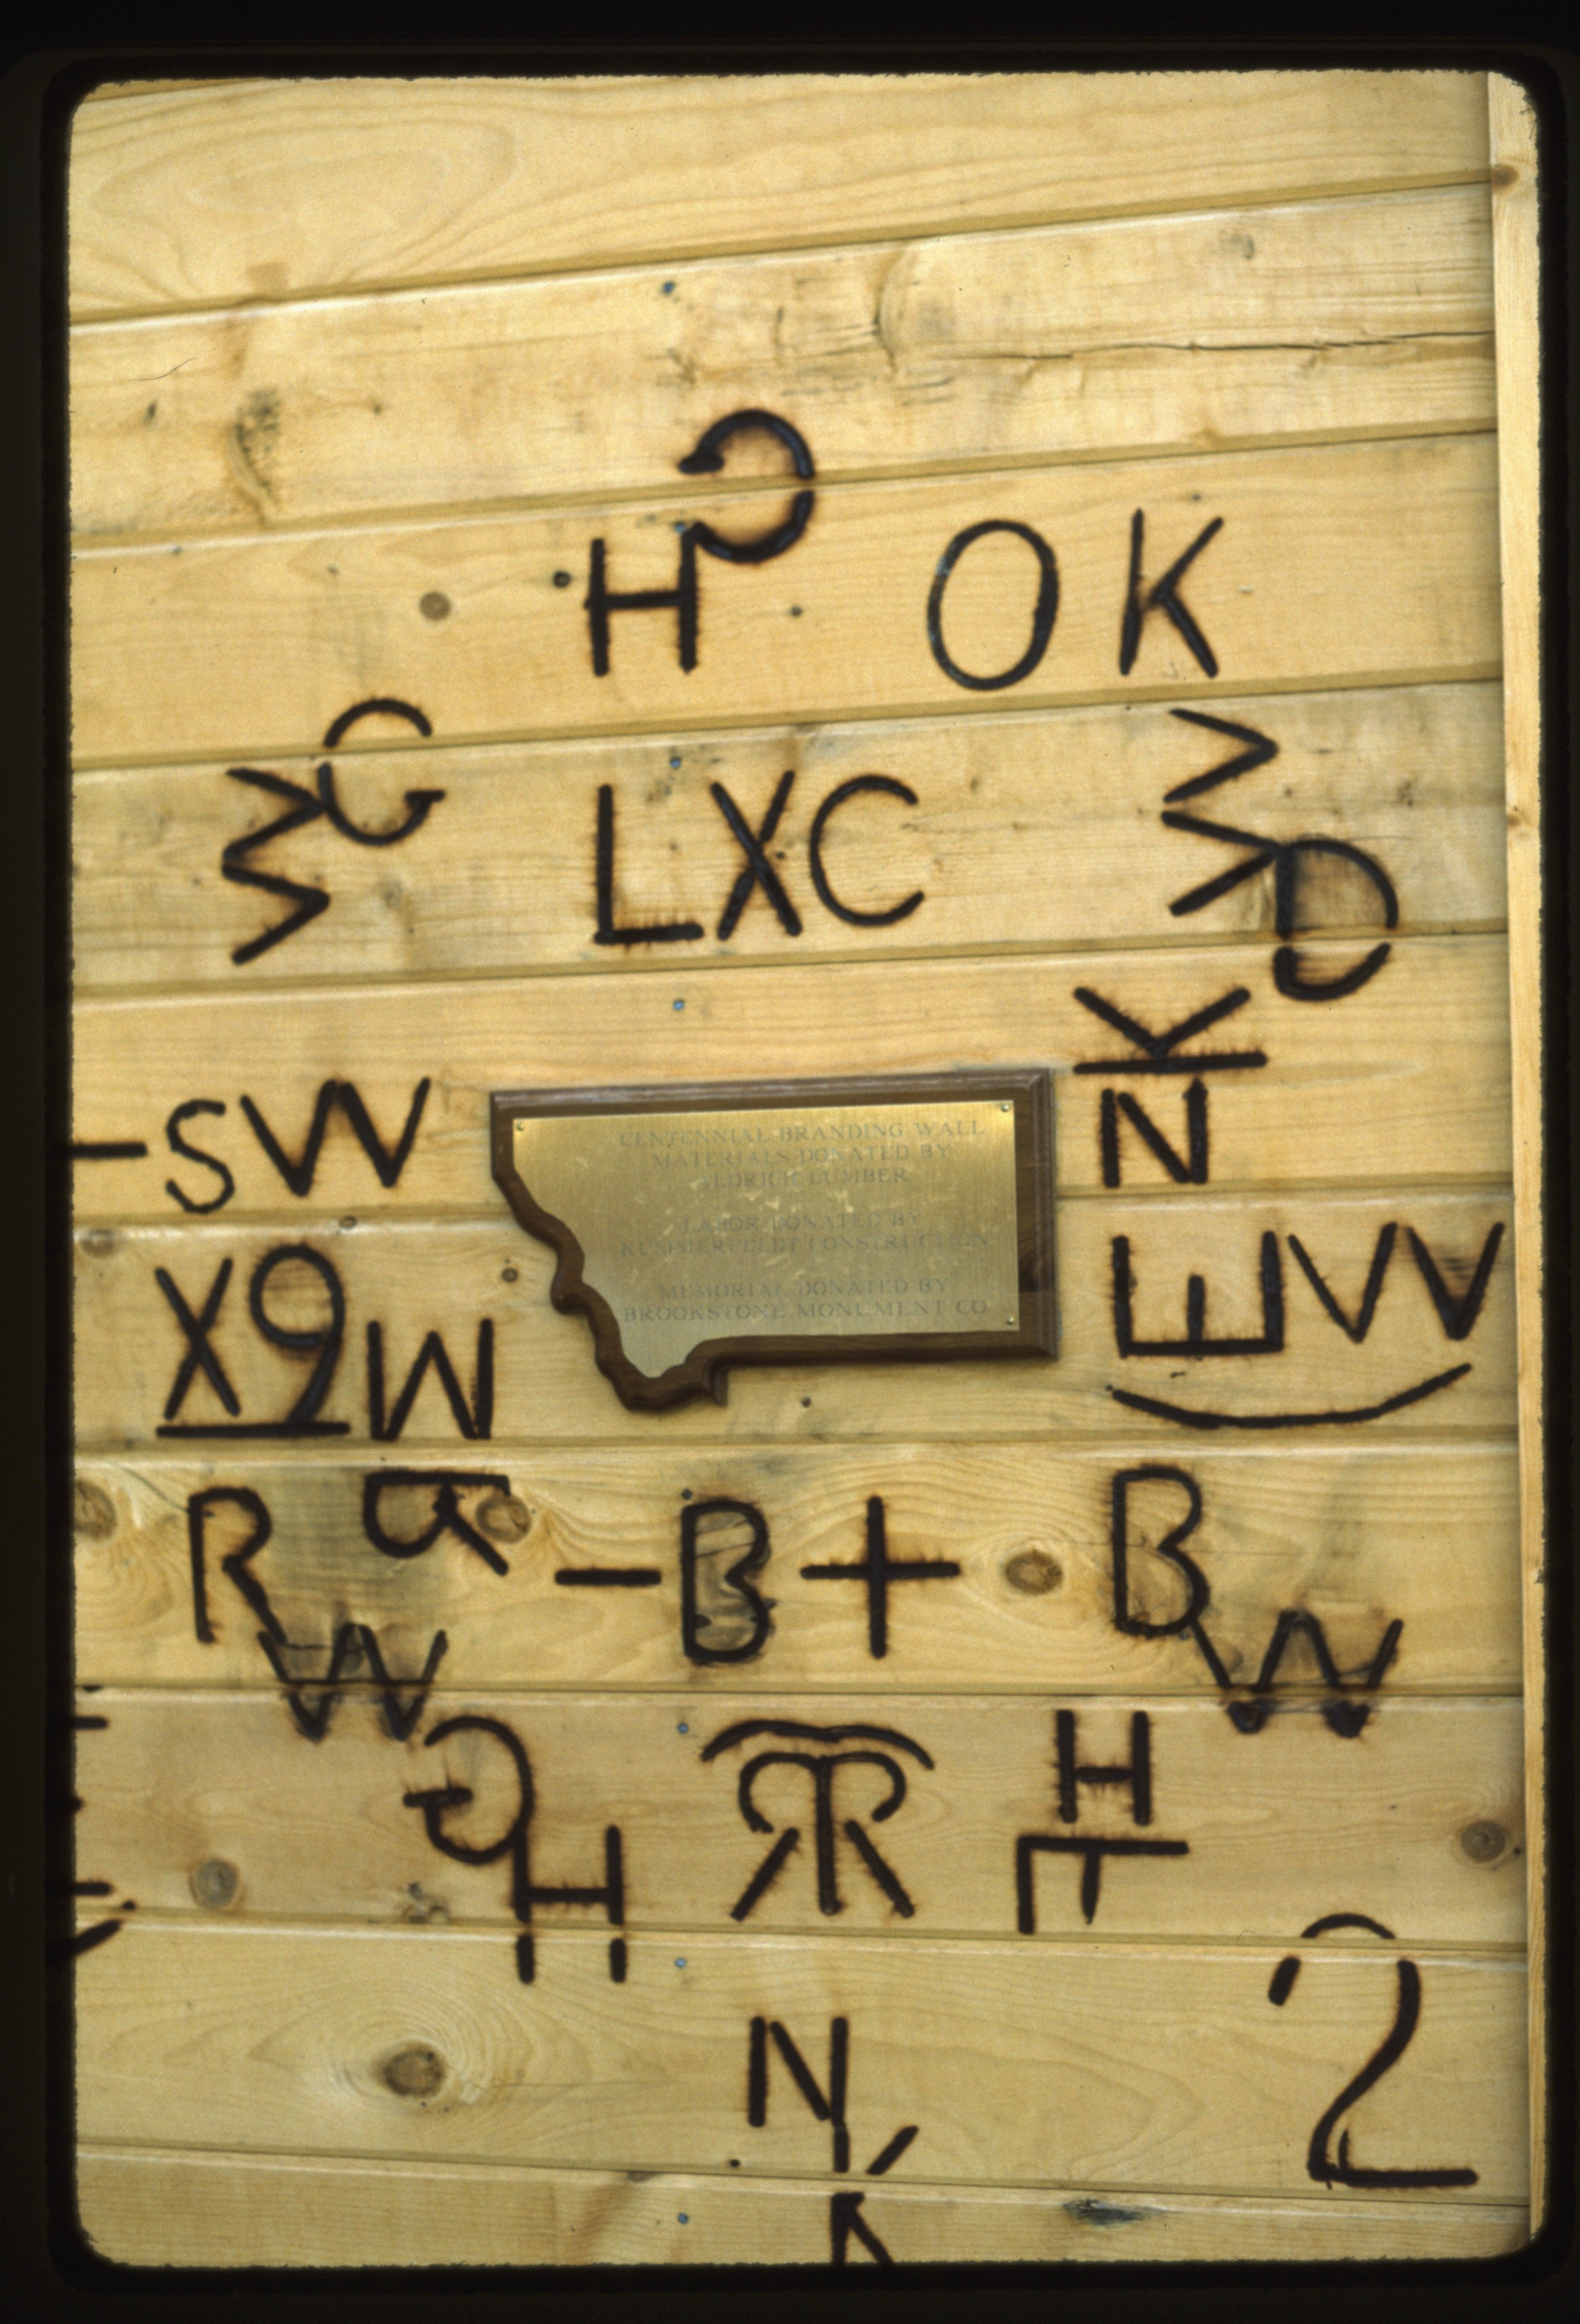 H
OK
LXC
SW
CENTENNIAL BRANDING WALL
MATERIALS DONATED BY
ALDRICH LUMBER
LABOR DONATED BY
KUMMERFELDT CONSTRUCTION
MEMORIAL DONATED BY
BROOKSTONE MONUMENT CO
K
N
X9
W
E W
R
R
W
-B+
B
W
G
H
H
N
K
2